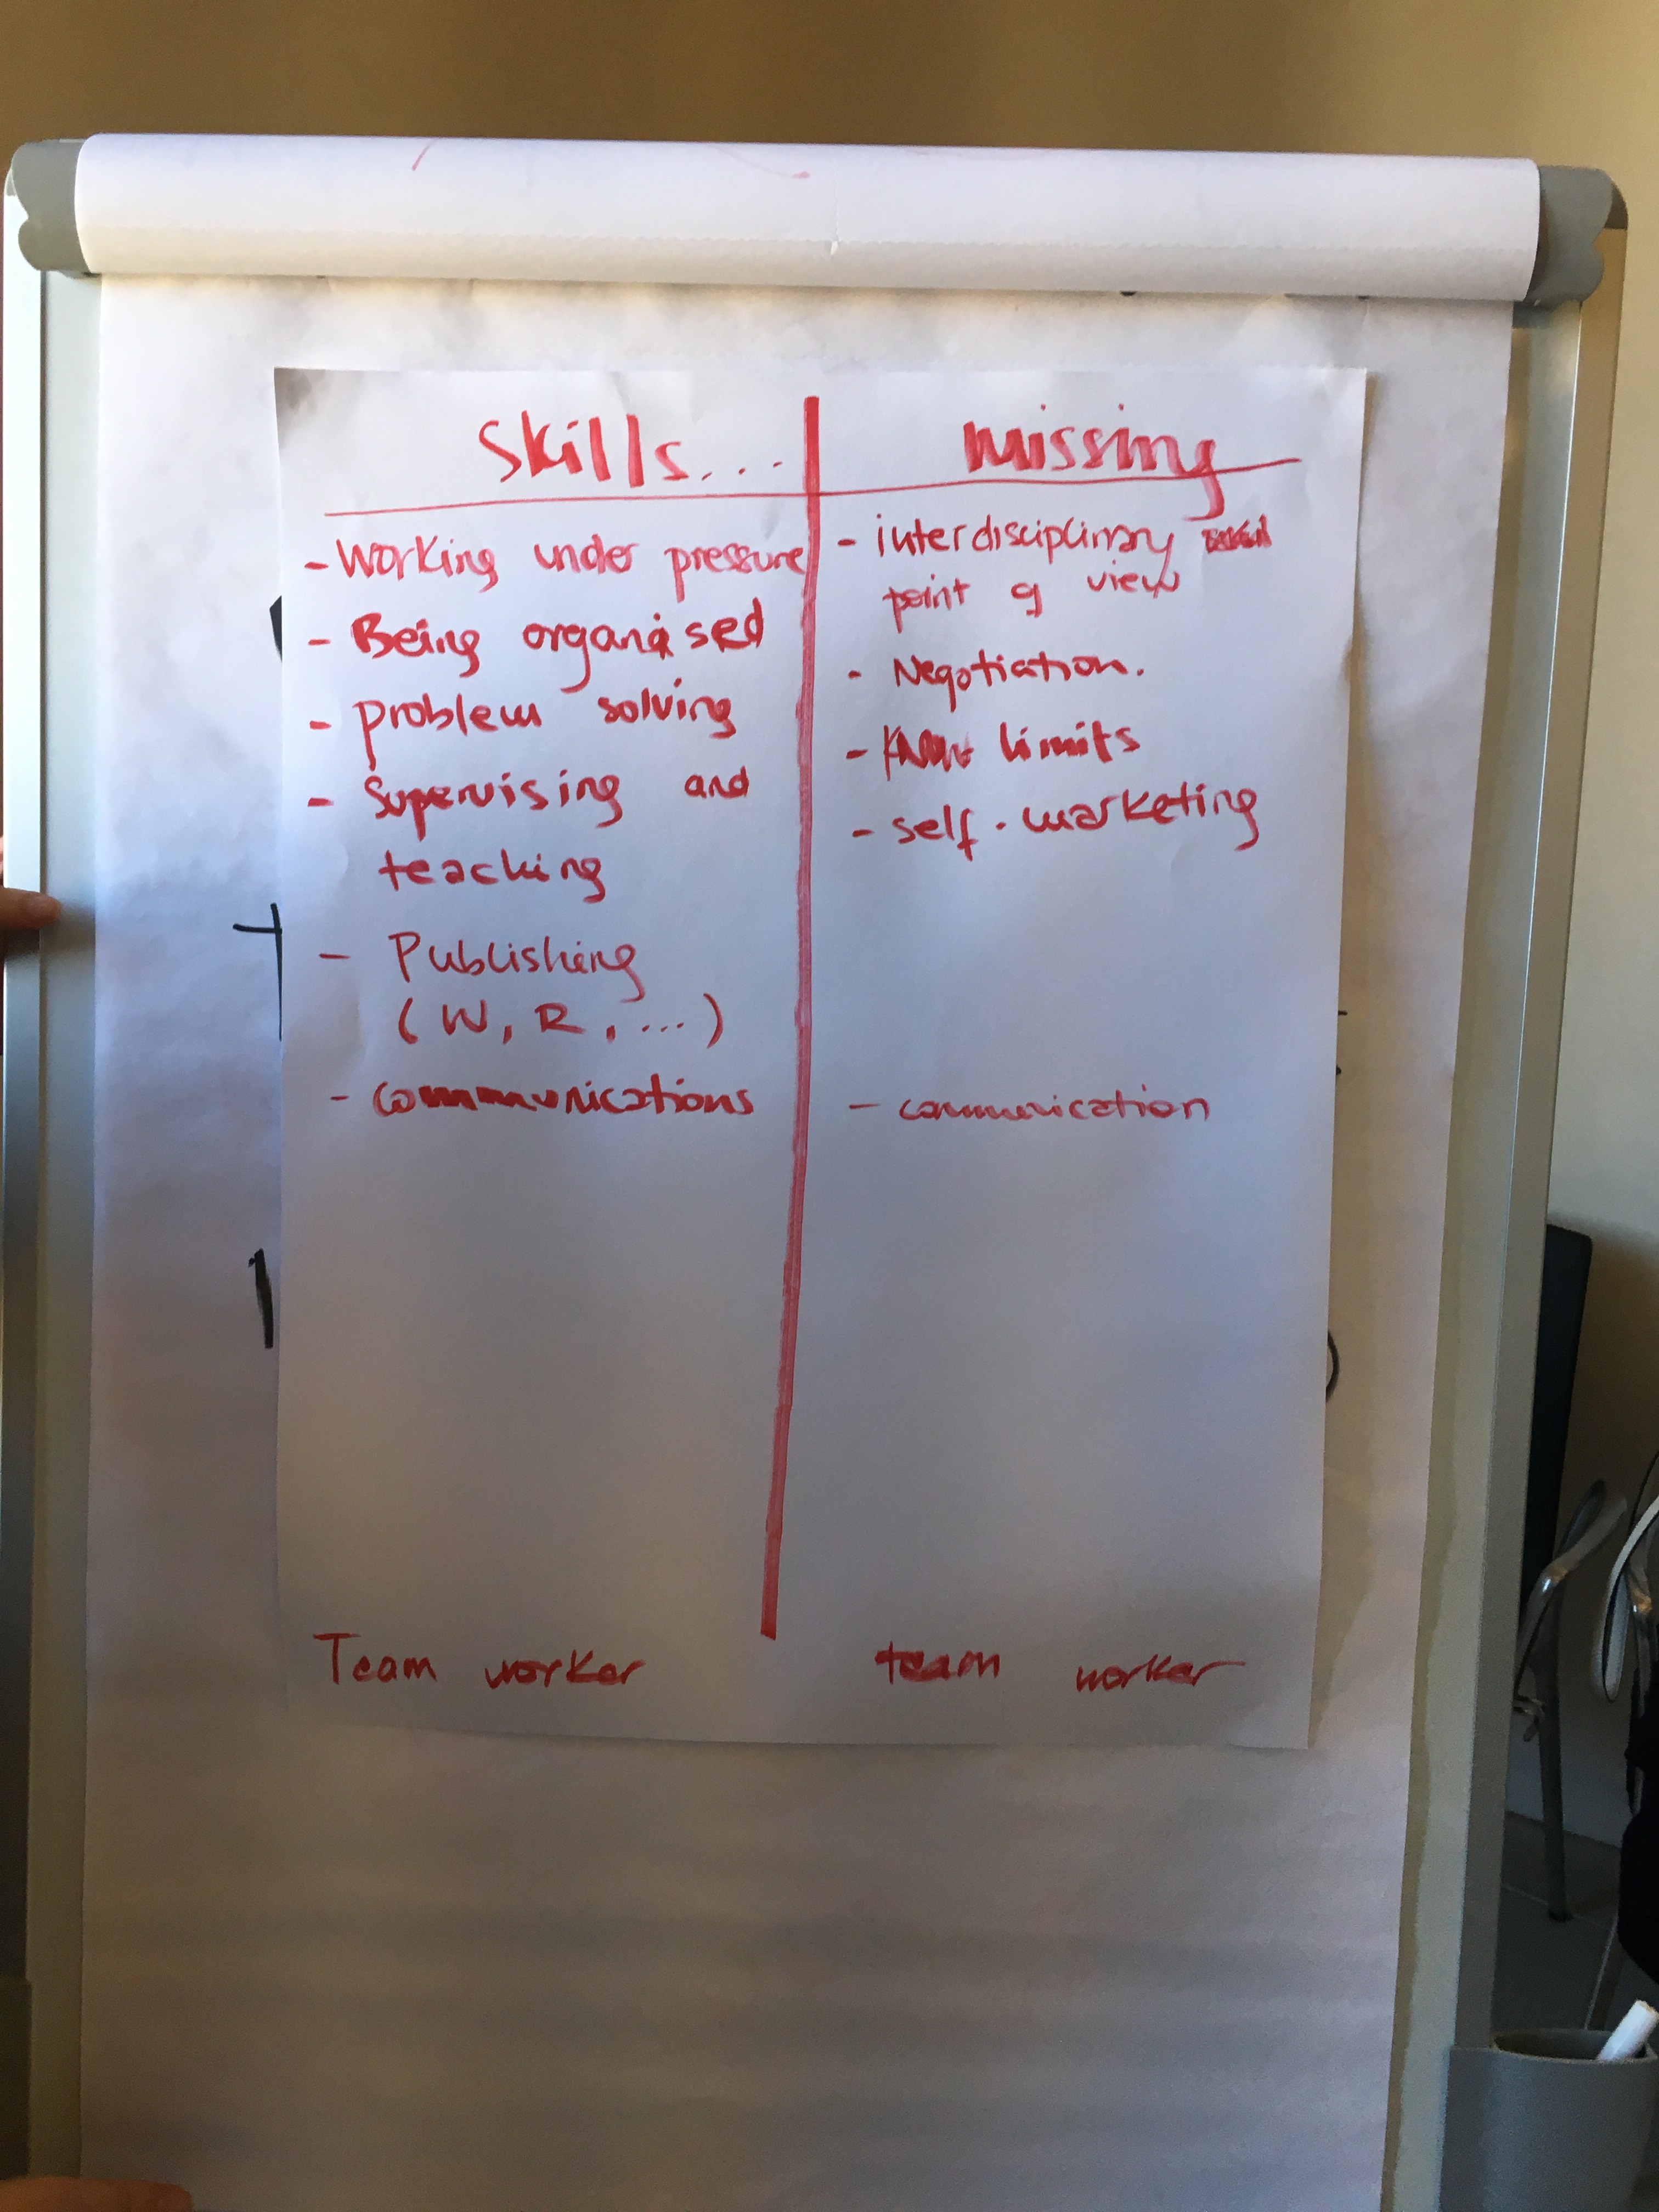 Skills...
- Working under pressure
- Being organised
- problem solving
- Supervising and
teaching
- Publishing
(W, R, ...)
- communications
Team worker
missing
- interdisciplinary
point of view
- Negotiation.
- Know limits
- self-marketing
- communication
team worker